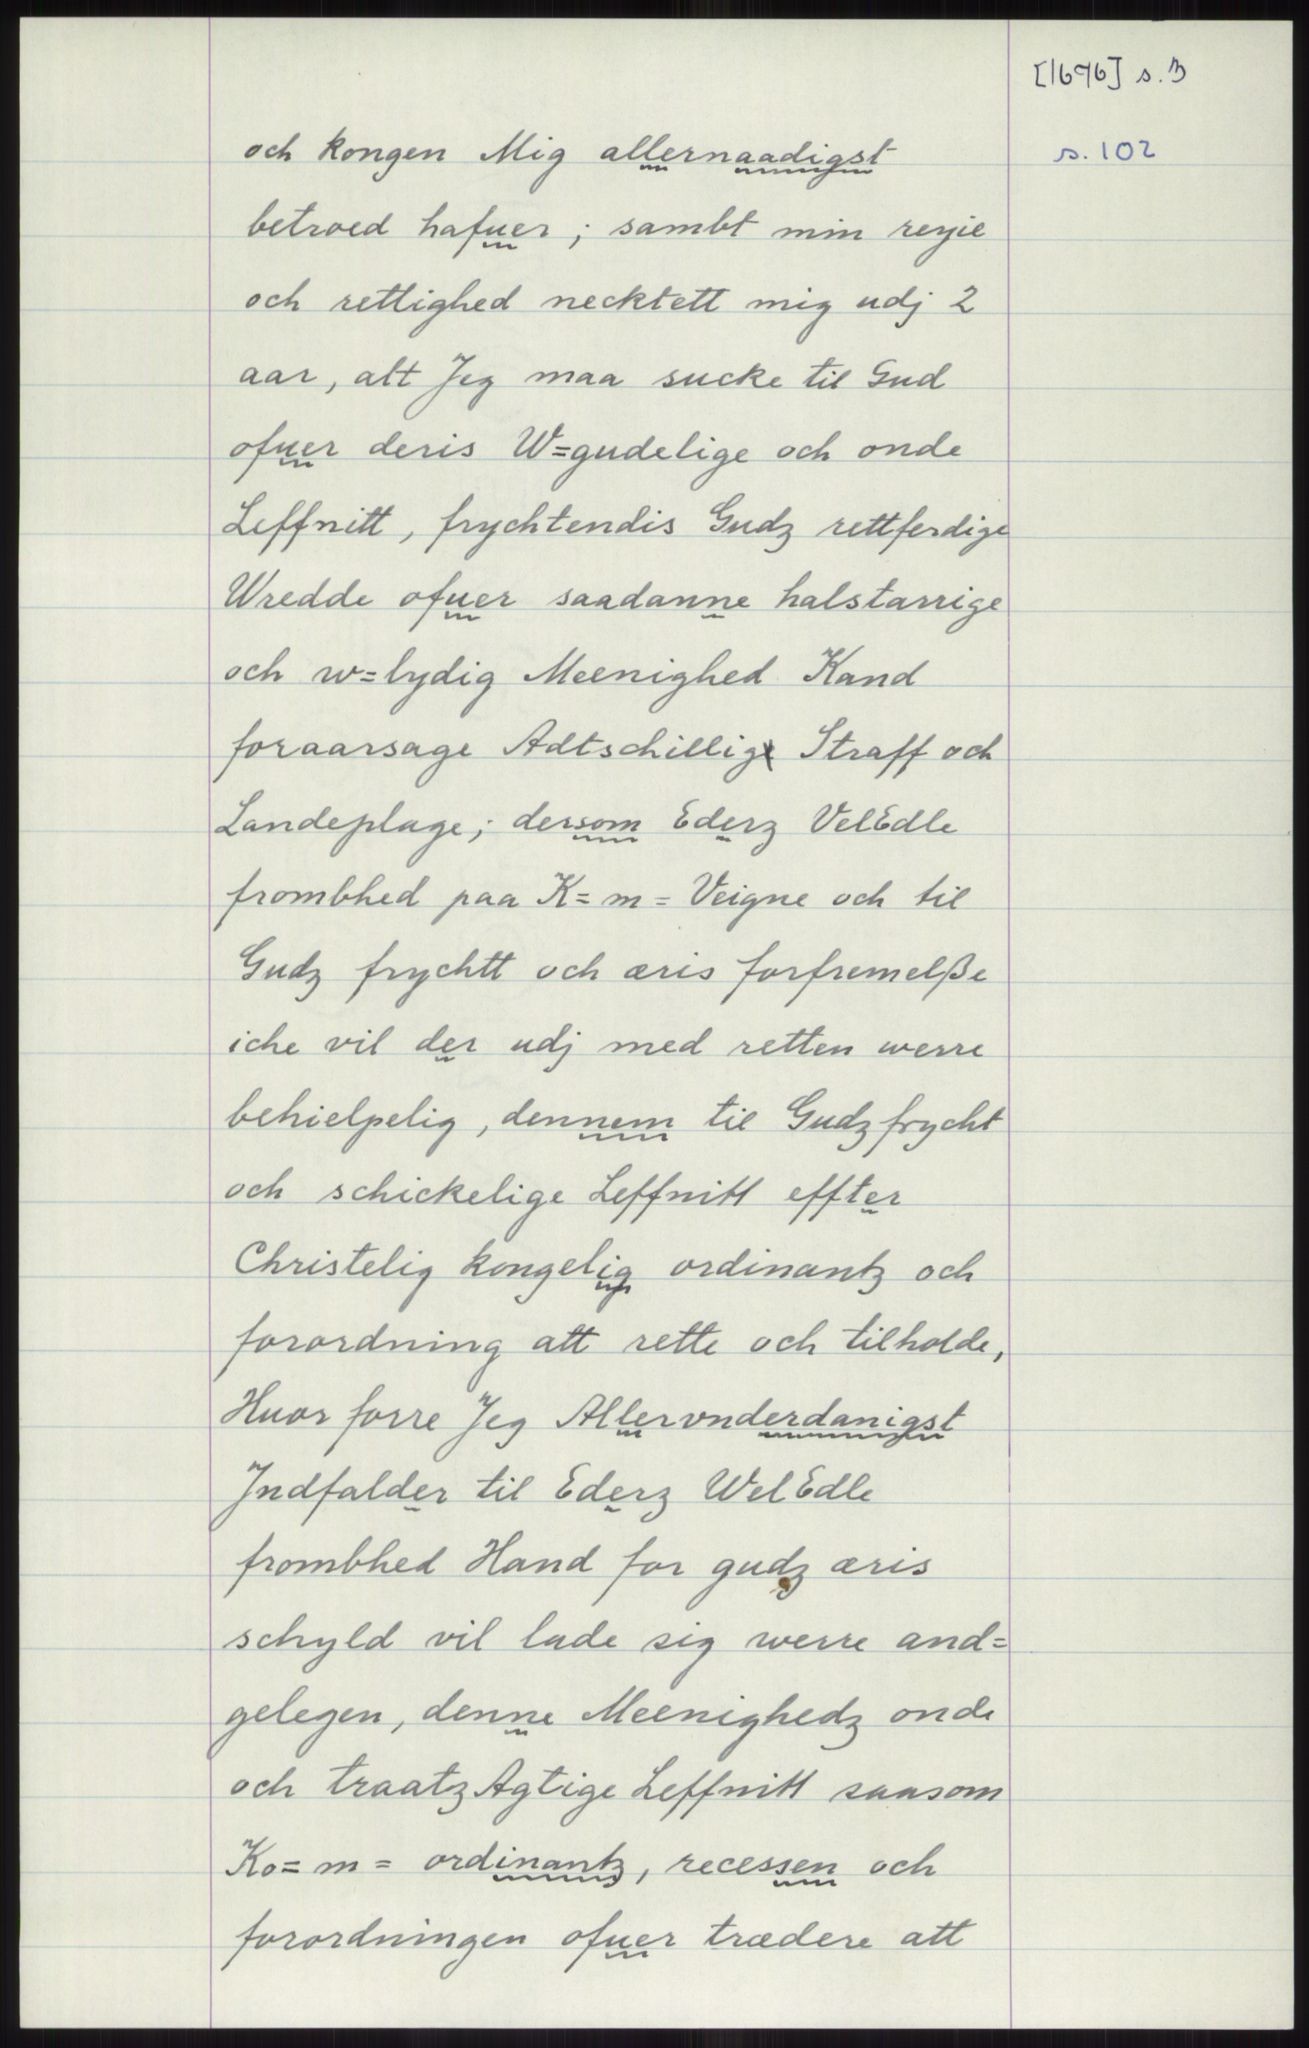 [1696] s. 3
s. 102
och kongen Mig allernaadigst
betroed hafuer ; sambt min renje
och rettighed necktett mig udj 2
aar, alt Jeg maa sucke til Gud
ofuer deris W=gudelige och onde
Leffnitt, frychtendis Gudz rettferdige
Wredde ofuer saadanne halstarrige
och w=lydig Meenighed Kand
foraarsage Adtschillig Straff och
Landeplage; dersom Ederz VelEdle
frombhed paa K=m= Veigne och til
Gudz frychtt och æris forfremelße
iche vil der udj med retten werre
behielpelig, dennem til Gudzfrycht
och schickelige Leffnitt effter
Christelig kongelig ordinantz och
forordning att rette och tilholde,
Huor forre Jeg Allervnderdanigst
Jndfalder til Ederz WelEdle
frombhed Hand for gudz æris
schyld vil lade sig werre and=
gelegen, denne Meenighedz onde
och traatzAgtige Leffnitt saasom
Ko=m= ordinantz, recessen och
forordningen ofuer trædere att